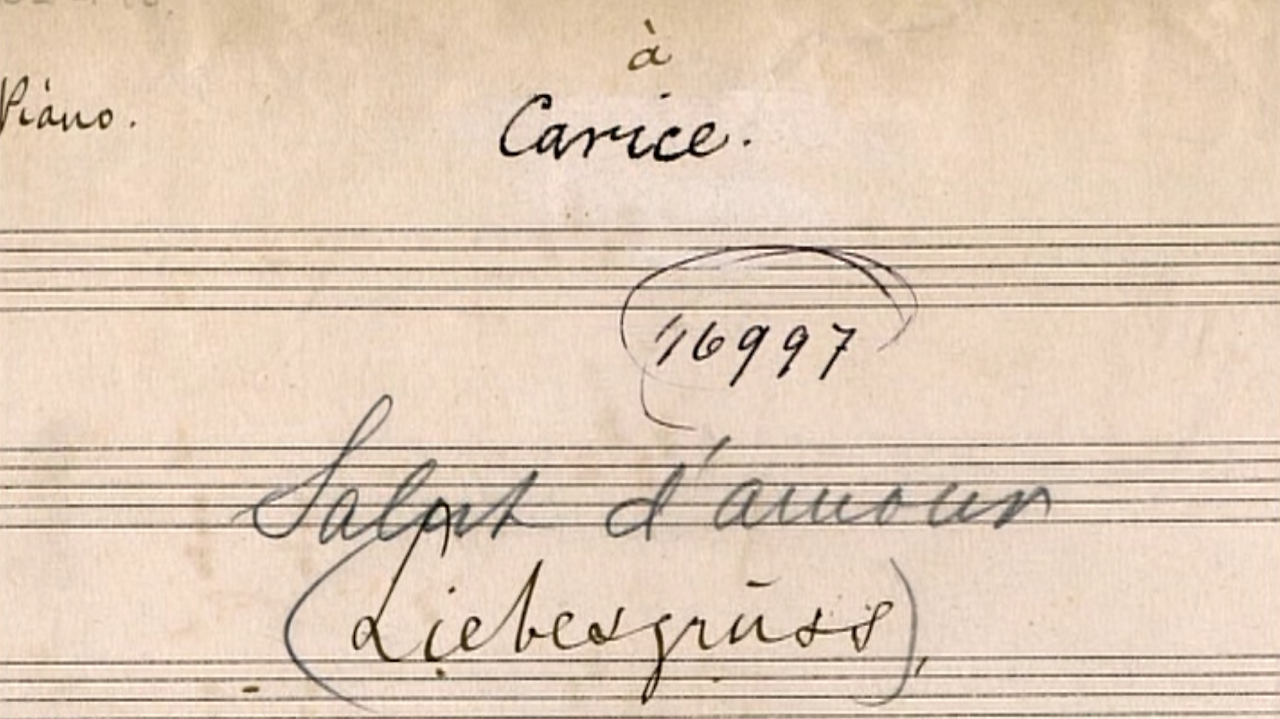 à
Piano.
Carice.
16997
Salut d'amour
(Liebesgrüss),